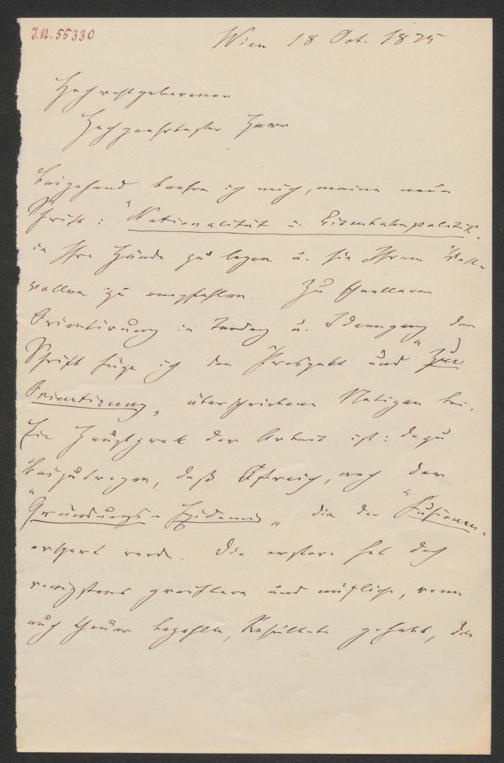 I.N. 55330
Wien 18 Oct. 1875
Hochwohlgeborener
Hochgeehrtester Herr
Beigehend beehre ich mich, meine neue
Schrift: "Nationalität u. Eisenbahnpolitik"
in Ihre Hände zu legen u. sie Ihrem Wohl-
wollen zu empfehlen. Zu schnellerer
Orientirung in Tendenz u. Ideengang der
Schrift füge ich den Prospekt und "Zur
Orientirung" überschriebene Notizen bei.
Ein Hauptzweck der Arbeit ist: dazu
beizutragen, daß Östreich, nach der
"Gründungs-Epidemie" die der "Fusionen"
erspart werde. Die erstere hat doch
wenigstens greifbare und nützliche, wenn
auch theuer bezahlte, Resultate gehabt, die